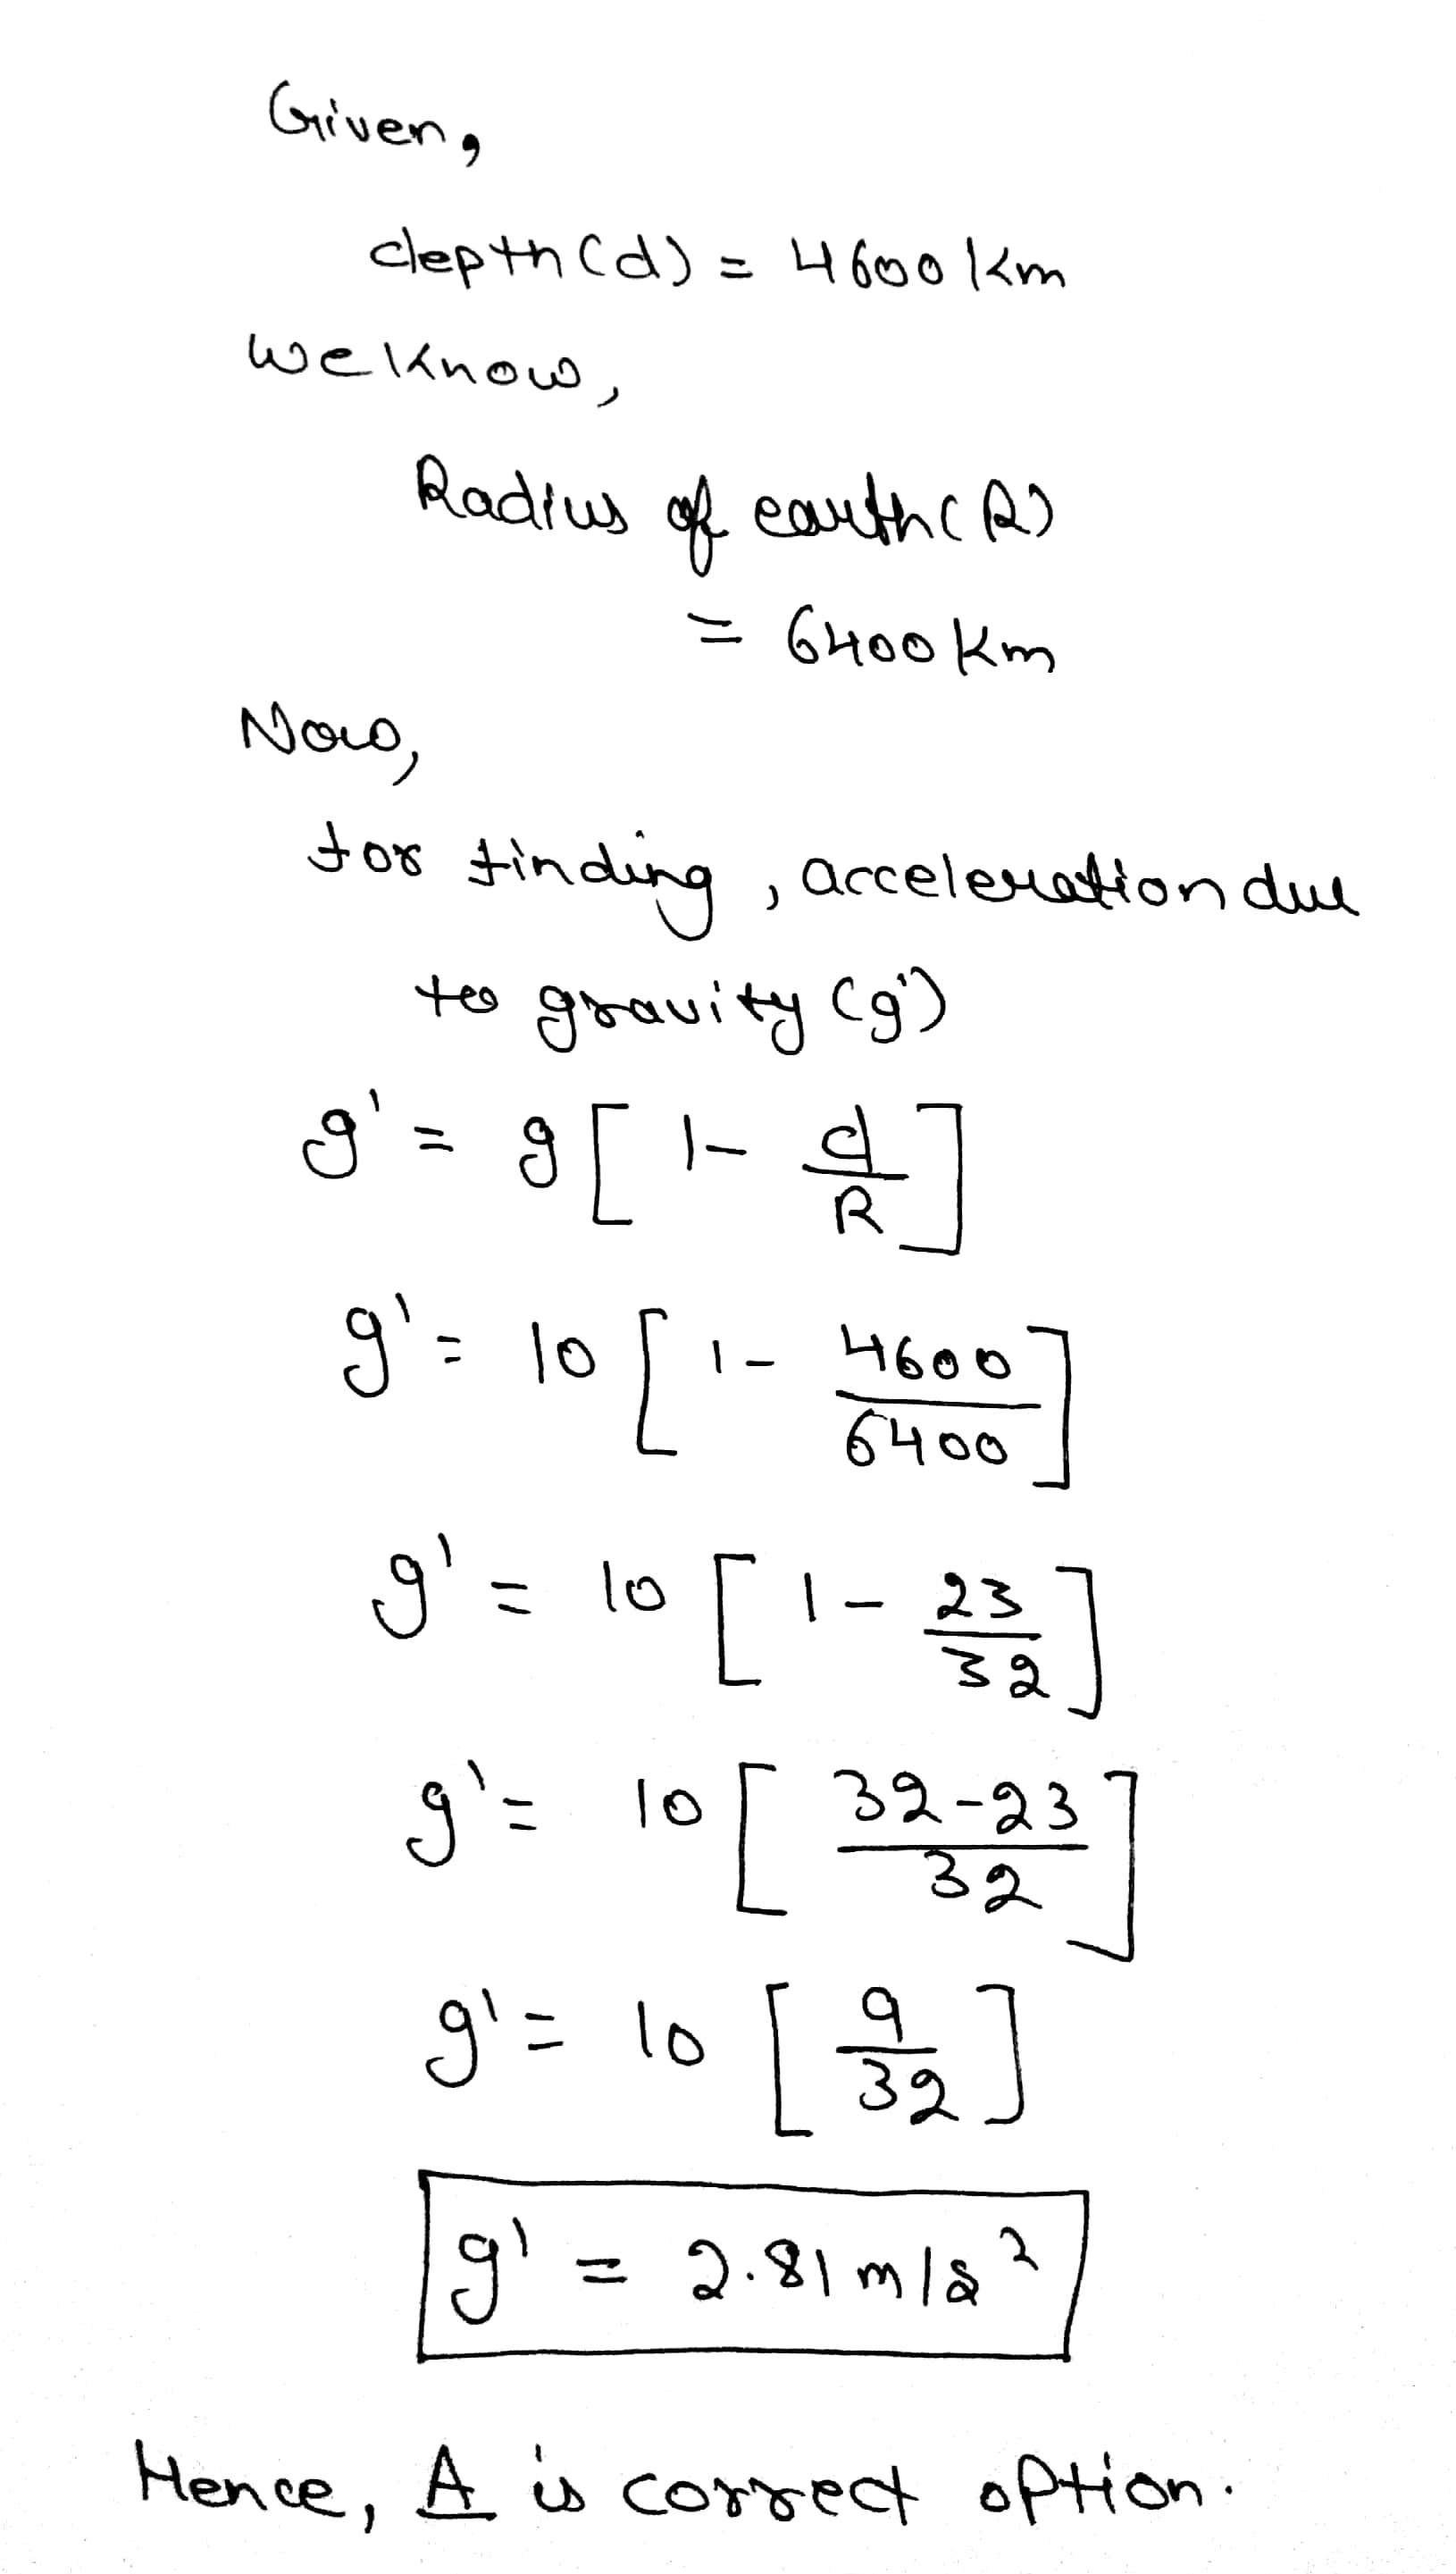 Given,
depth (d) = 4600 km
we know,
Radius of earth (R)
= 6400 km
Now,
for finding, acceleration due
to gravity (g')
g' = g [ 1 - d/R ]
g' = 10 [ 1 - 4600/6400 ]
g' = 10 [ 1 - 23/32 ]
g' = 10 [ 32-23/32 ]
g' = 10 [ 9/32 ]
g' = 2.81 m/s²
Hence, A is correct option.